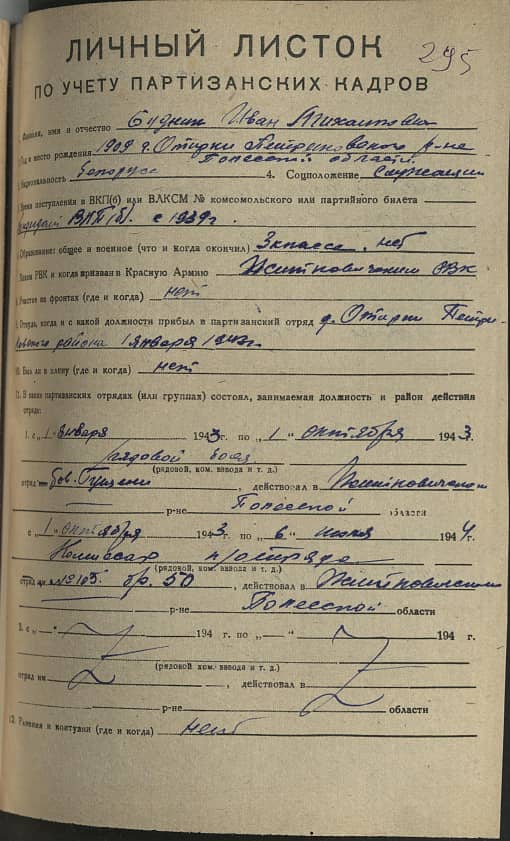 ЛИЧНЫЙ ЛИСТОК
295
ПО УЧЕТУ ПАРТИЗАНСКИХ КАДРОВ
1. Фамилия, имя и отчество Будник Иван Михайлович
2. Год и место рождения 1909 д. Отирки Петриковского р-на
Полесской области
3. Национальность белорус 4. Соцположение служащий
5. Время поступления в ВКП(б) или ВЛКСМ № комсомольского или партийного билета
кандидат ВКП(б) с 1939г.
6. Образование: общее и военное (что и когда окончил) 3 класса, нет
7. Каким РВК и когда призван в Красную Армию Житковичским РВК
8. Участие на фронтах (где и когда) нет
9. Откуда, когда и с какой должности прибыл в партизанский отряд д. Отирки Петри-
ковского района 1 января 1943г
10. Был ли в плену (где и когда) нет
11. В каких партизанских отрядах (или группах) состоял, занимаемая должность и район действия
отряда:
1. с „1" января 1943г. по „1" октября 1943.
рядовой боец
(рядовой, ком. взвода и т. д.)
отряд , действовал в Житковичском
р-не Полесской области
с „1" октября 1943г. по „6" июля 1944г.
Комиссар п/отряда
(рядовой, ком. взвода и т. д.)
отряд им №165 бр. 50, действовал в Житковичском
р-не Полесской области
3. с „ " 194 г. по „ " 194 г.
(рядовой ком. взвода и т. д.)
отряд им , действовал в
р-не области
12. Ранения и контузии (где и когда) нет